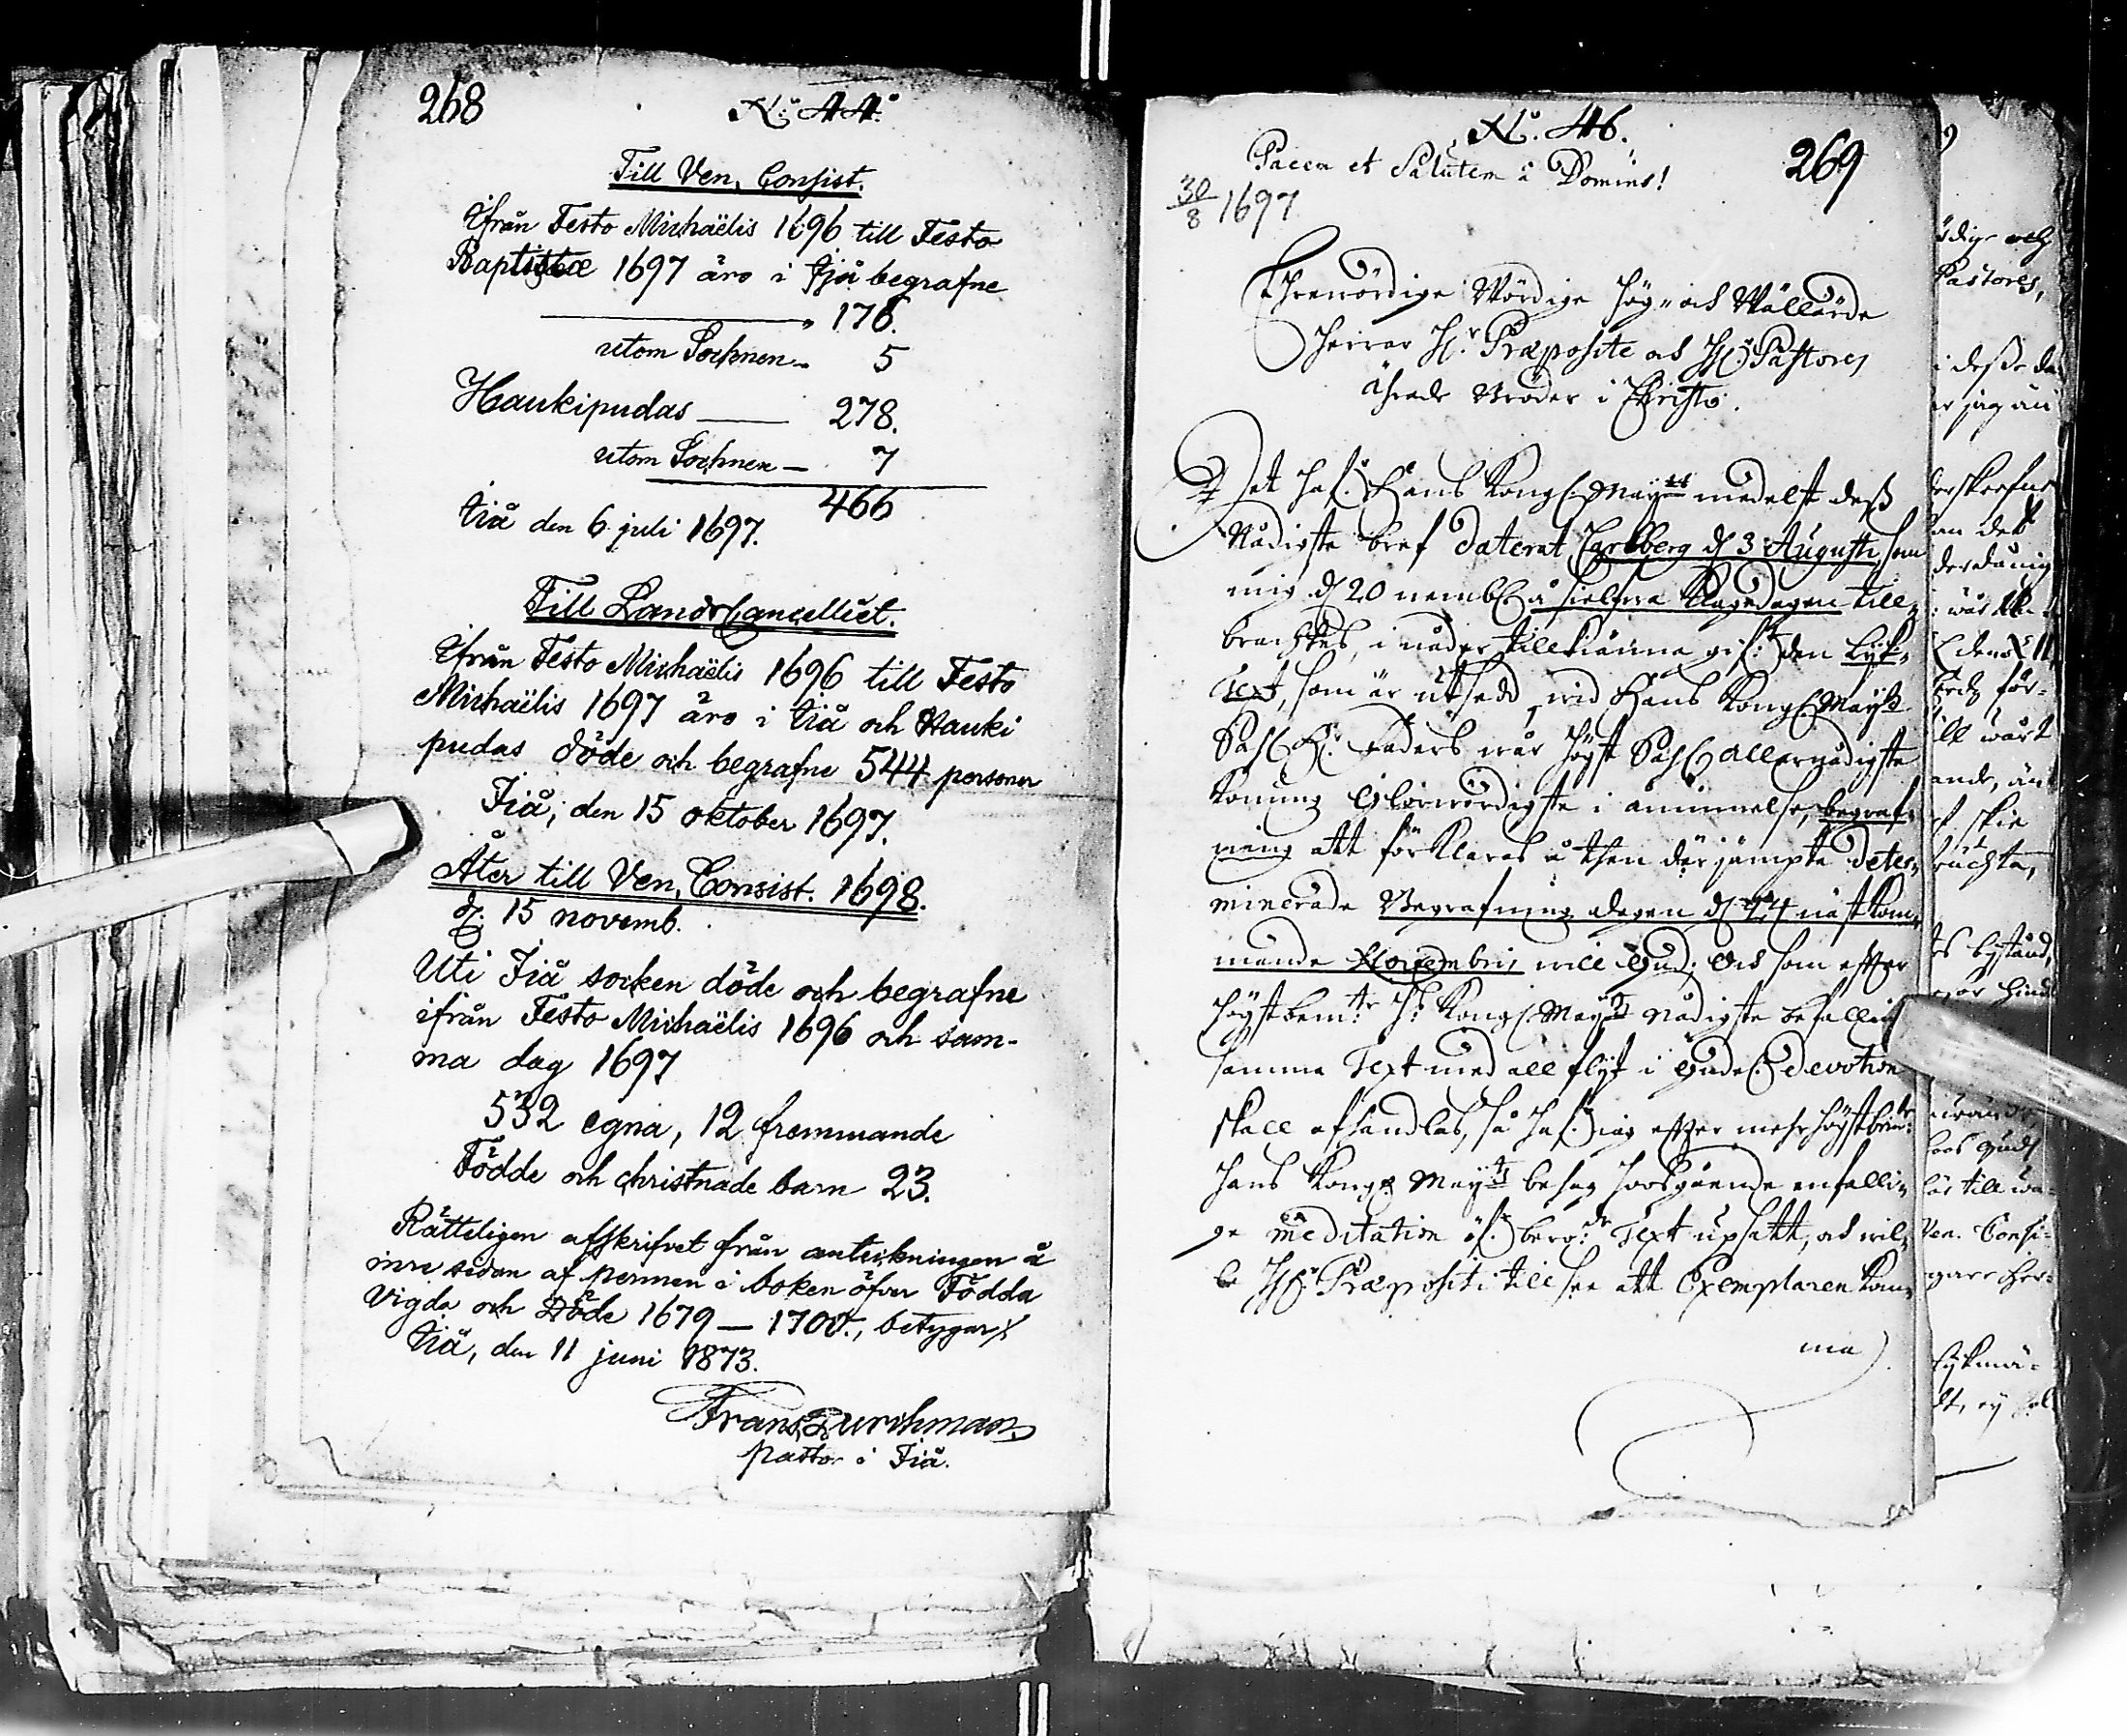 268
N:o 44.
Till Ven. Consist.
Ifrån Festo Michaëlis 1696 till Festo
Baptistæ 1697 äro i Ijå begrafne
176.
utom Sochnen 5
Haukipudas — 278.
utom Sochnen — 7
466
Iiå den 6 juli 1697.
Till LandsCancelliet.
Ifrån Festo Michaëlis 1696 till Festo
Michaëlis 1697 äro i Iiå och Hauki
pudas döde och begrafne 544 personer
Iiå, den 15 oktober 1697.
Åter till Ven. Consist. 1698.
d. 15 novemb.
Uti Iiå socken döde och begrafne
ifrån Festo Michaëlis 1696 och sam-
ma dag 1697
532 egna, 12 fremmande
Födde och christnade barn 23.
Rätteligen afskrifvet från anteckningen å
inre sidan af permen i boken öfver Födda
Vigda och Döde 1679 — 1700., betygar
Iiå, den 11 juni 1873.
Frans Durchman
pastor i Iiå.
N:o 46.
269
Pacem et Salutem a Domino!
30/8 1697
Ehrewördige Wördige Hög- och Wällärde
Herrar H:r Præposite och H:r Pastores
ährade Bröder i Christo.
Det haf:r Hans Kongl. May:tt medelst dess
Nådigste bref daterat Carlberg d 3 Augusti, som
mig d 20 å sielfwa Klagedagen till-
brachtes, i nåder tillkänna gif:t den Lijk-
Text, som är uthsedd wid Hans Kongl. May:tz
Sahl. H:r Faders wår Högst Sahl. allernådigste
Konung Glorwördigste i åminnelse, begraf-
ning att förklaras å then därjämpte deter-
minerade Begrafnings dagen d 24 nästkom-
mande Novembris will Gud; Och som effter
Högstbem:te H:s Kongl. May:tz nådigste befallning
samma Text med all flijt i Gudel. devotion
skall afhandlas, så haf:r jag effter mehrhögstbem:te
Hans Kongl. May:tz behag hoosgående enfalli-
ge meditation öf:r berör:de Text upsatt, och wil-
le H:r Præpositi tillsee att Exemplaren kom-
ma
Pastores,